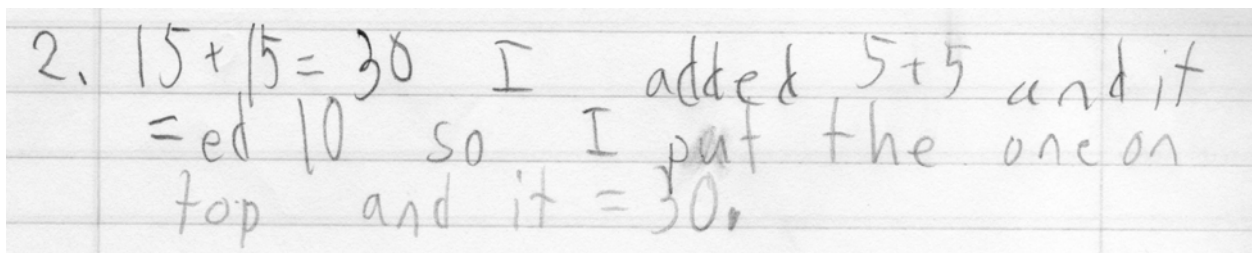 2. 15+15=30 I added 5+5 and it
=ed 10 so I put the one on
top and it =30.